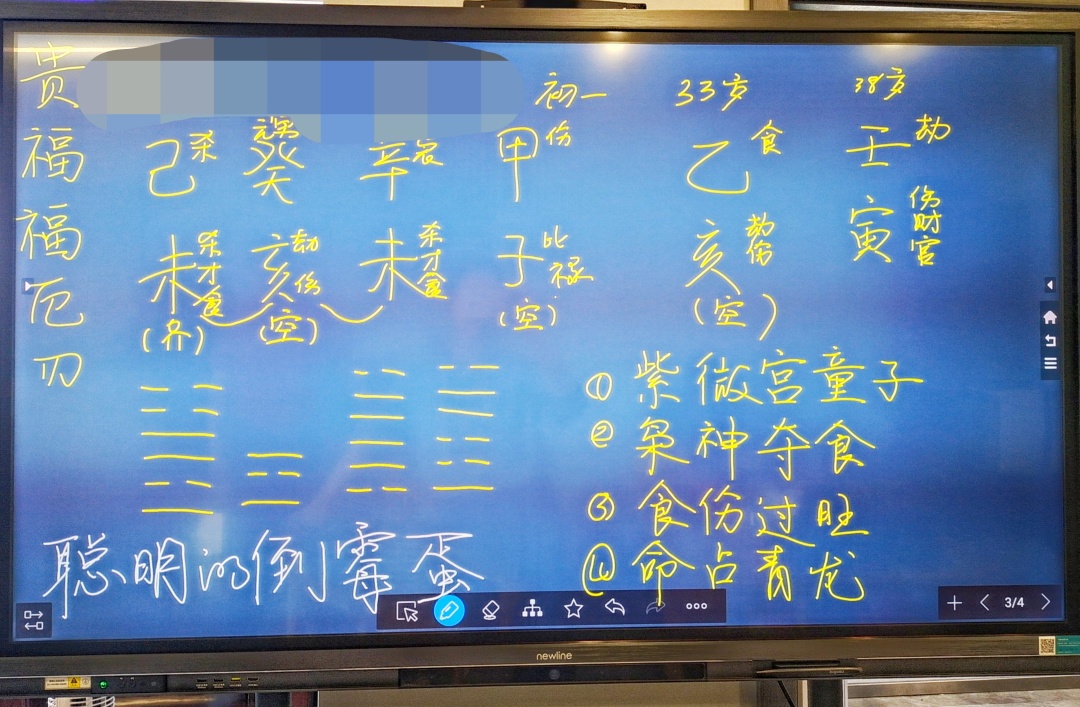 贵
福
福
厄
刃
初一 33岁 38岁
己 杀 癸 元男 天 辛 甲 伤 乙 食 壬 劫
未 杀才食 亥 劫伤 未 杀才食 子 比禄 亥 劫伤 寅 伤财官
(空) (空) (空)
① 紫微宫童子
② 枭神夺食
③ 食伤过旺
④ 命占青龙
聪明的倒霉蛋
3/4
newline